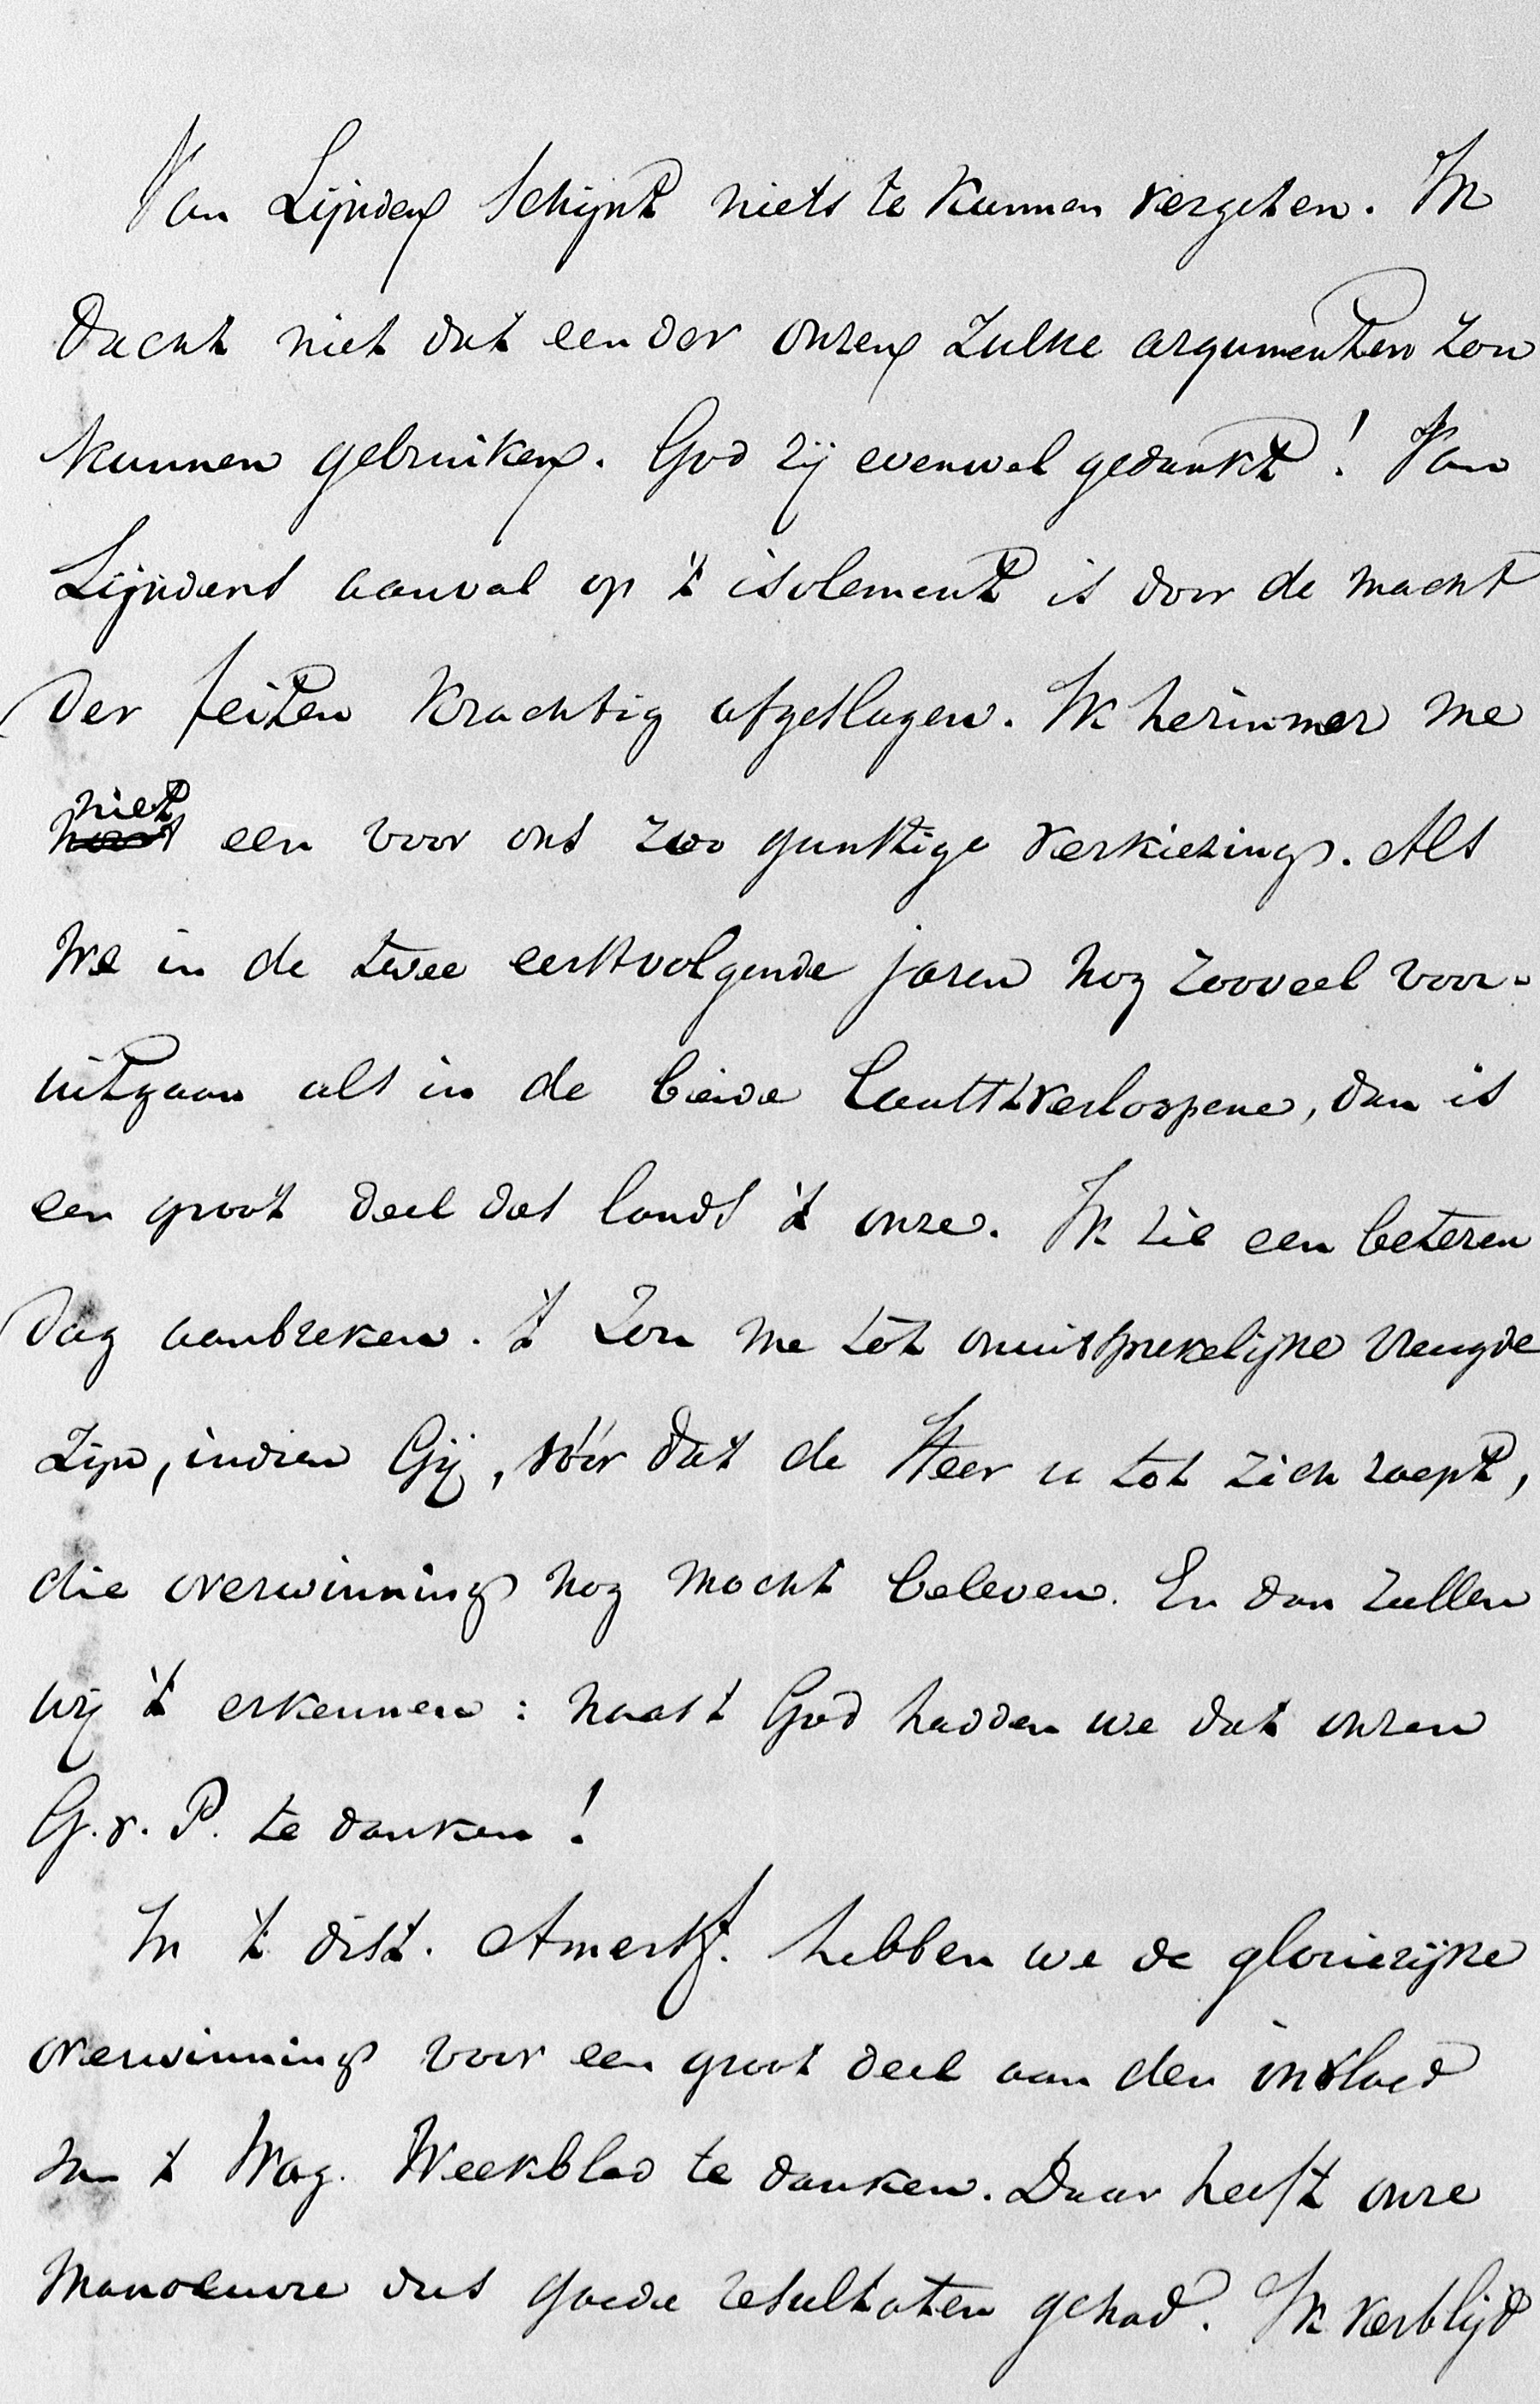 Van Lijnden schijnt niets te kunnen vergeten. Ik
dacht niet dat een der onzen zulke argumenten zou
kunnen gebruiken. God zij evenwel gedankt! Van
Lijndens aanval op 't isolement is door de macht
der feiten krachtig afgeslagen. Ik herinner me
niet een voor ons zoo gunstige verkiezing. Als
we in de twee eerstvolgende jaren nog zooveel voor-
uitgaan als in de beide laatstverloopene, dan is
een groot deel des lands 't onze. Ik zie een beteren
dag aanbreken. 't Zou me tot onuitsprekelijke vreugde
zijn, indien Gij, vóór dat de Heer u tot zich roept,
die overwinning nog mocht beleven. En dan zullen
wij 't erkennen: naast God hadden we dat onzen
G. v. P. te danken!
In 't dist. Amersf. hebben we de glorierijke
overwinning voor een groot deel aan den invloed
van 't Wag. Weekblad te danken. Daar heeft onze
manoeuvre dus goede resultaten gehad. Ik verblijd